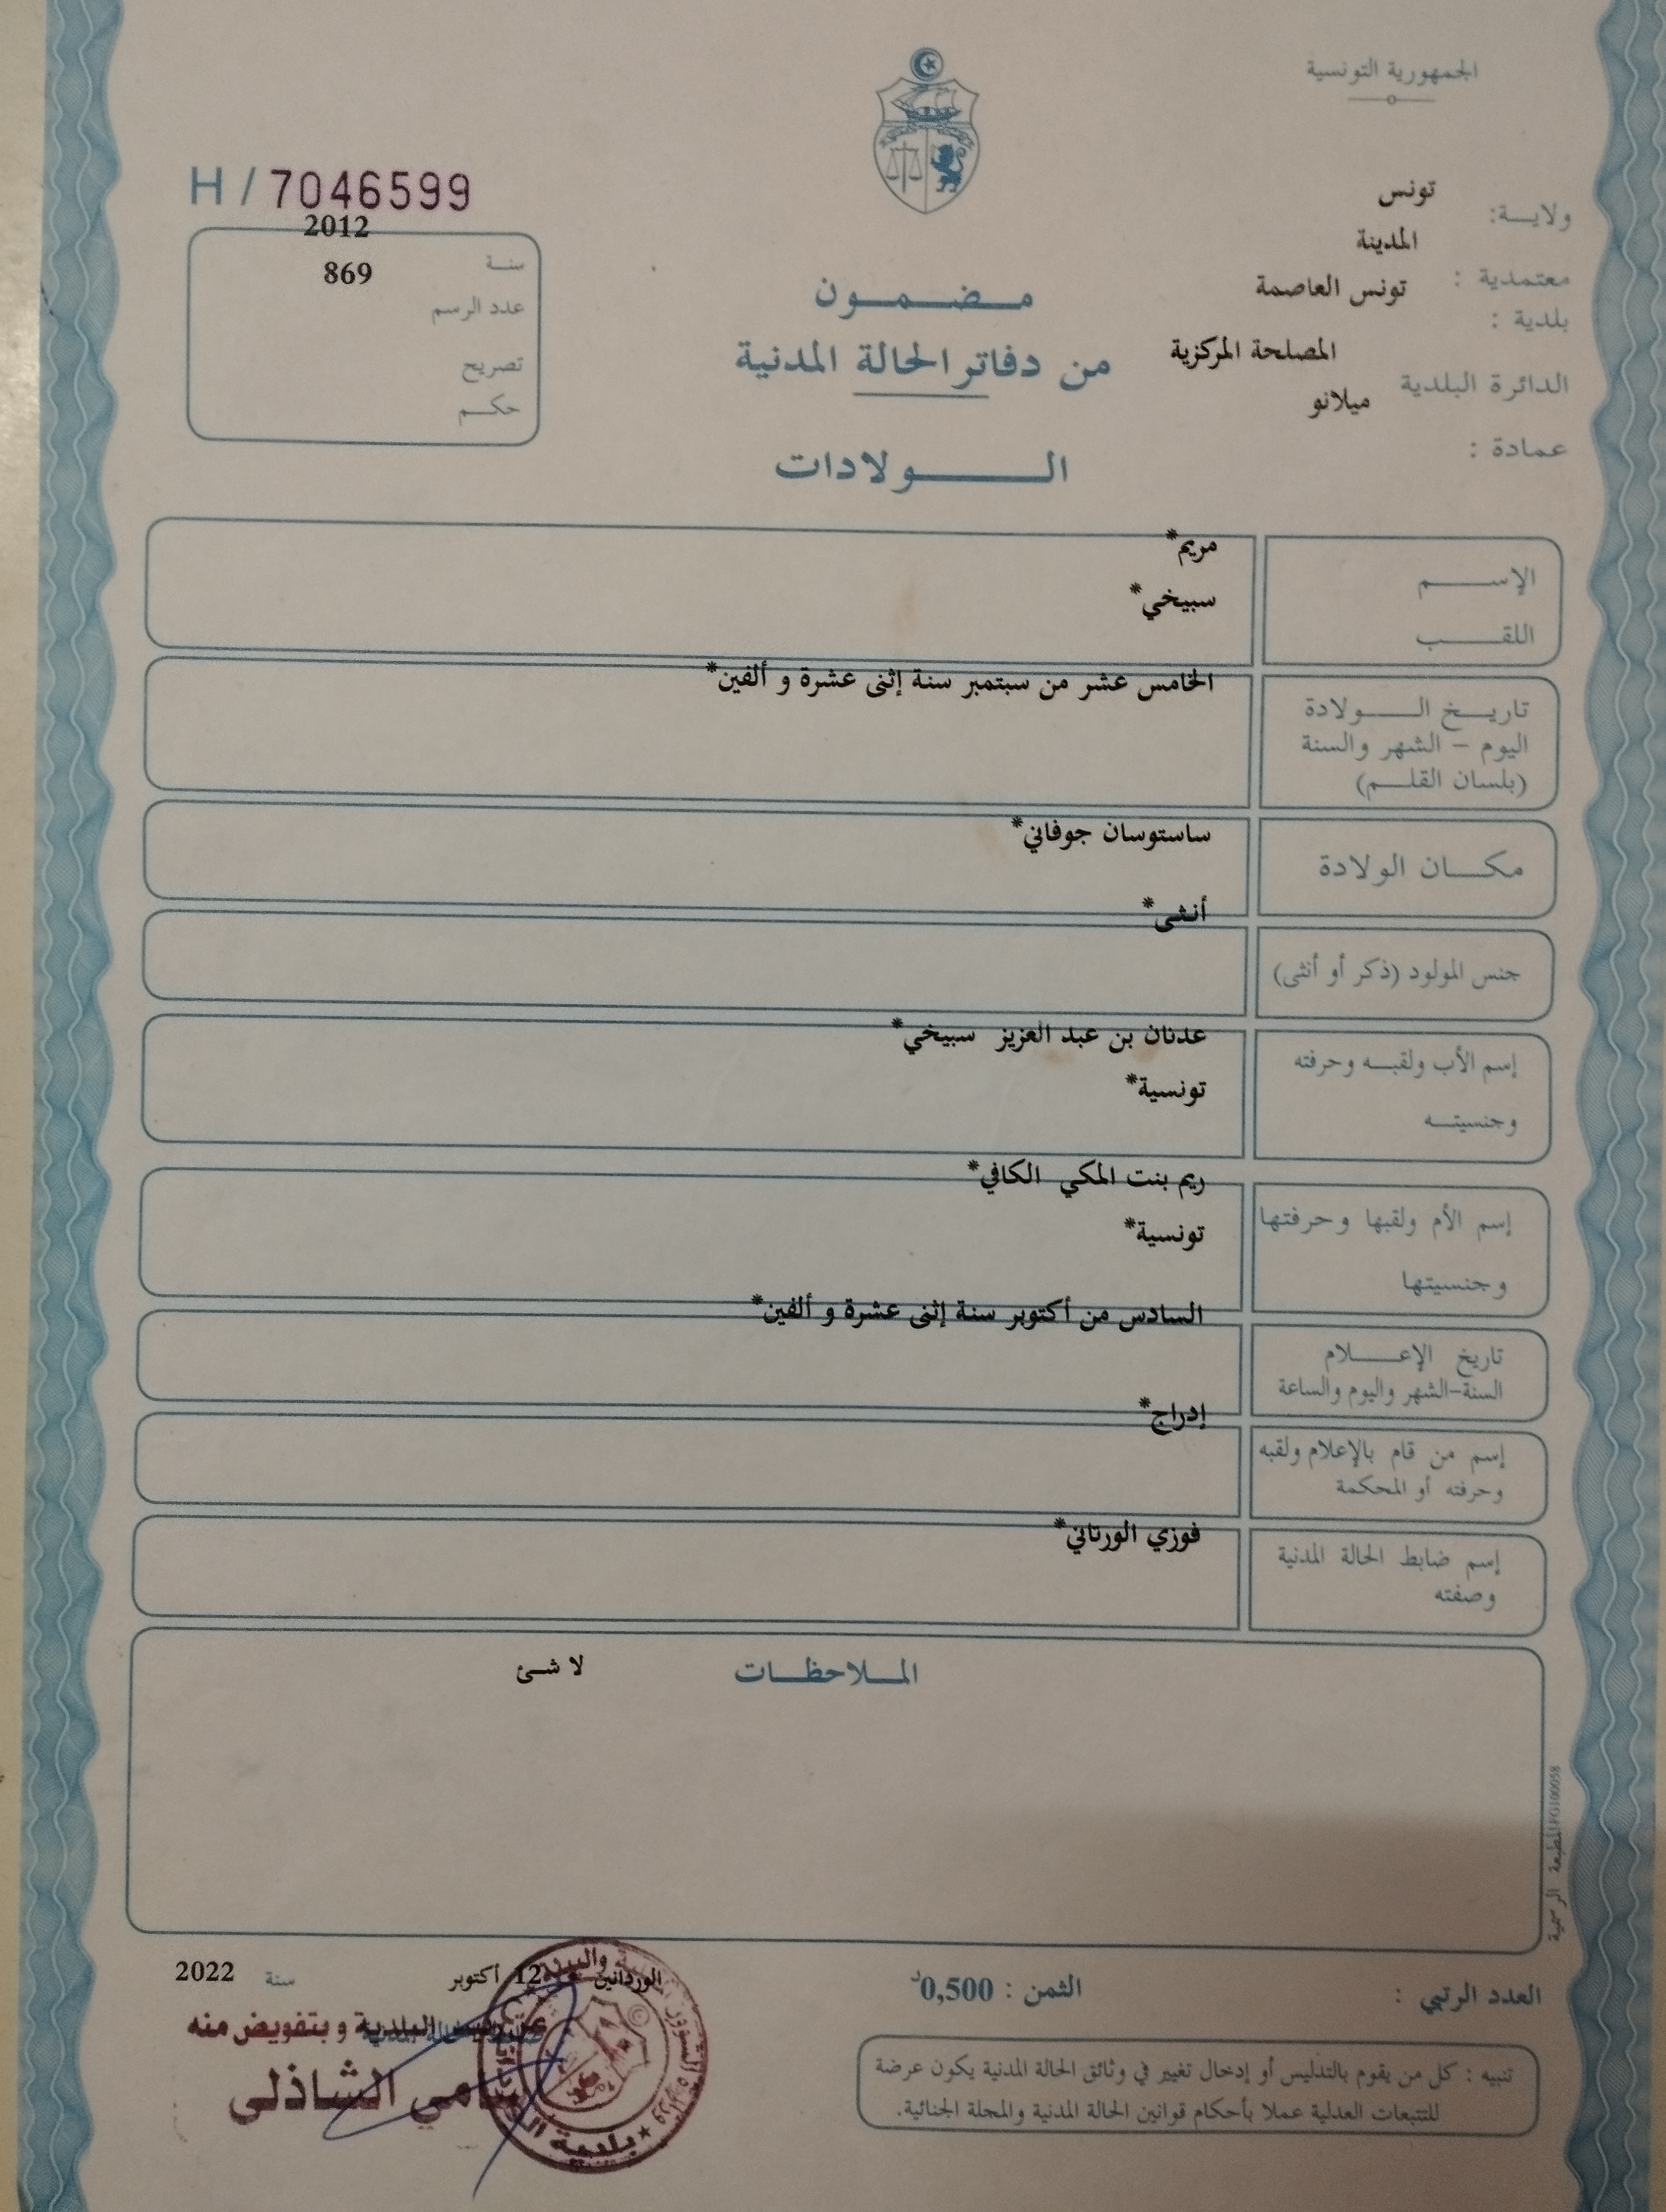 الجمهورية التونسية
ولايـــة: تونس
معتمدية : المدينة
بلدية : تونس العاصمة
الدائرة البلدية المصلحة المركزية
عمادة : ميلانو
H / 7046599
سنـة 2012
عدد الرسم 869
تصريح
حكـــم
مـــضـــمـــون
من دفاتر الحالة المدنية
الـــــولادات
الإســـــم مريم*
اللقـــــب سبيخي*
تاريـــخ الـــــولادة
اليوم - الشهر والسنة
(بلسان القلـــم)
الخامس عشر من سبتمبر سنة إثنى عشرة و ألفين*
مكـــان الولادة ساستوسان جوفاني*
جنس المولود (ذكر أو أنثى) أنثى*
إسم الأب ولقبـــه وحرفته عدنان بن عبد العزيز سبيخي*
وجنسيتـــه تونسية*
إسم الأم ولقبها وحرفتها ريم بنت المكي الكافي*
وجنسيتها تونسية*
تاريخ الإعـــــلام
السنة-الشهر واليوم والساعة
السادس من أكتوبر سنة إثنى عشرة و ألفين*
إسم من قام بالإعلام ولقبه
وحرفته أو المحكمة
إدراج*
إسم ضابط الحالة المدنية
وصفته
فوزي الورتاني*
المـــلاحظـــات لا شئ
المطبعة الرسمية
العدد الرتبي : الثمن : 0,500د
الوردانين 12 أكتوبر سنة 2022
عن رئيس البلدية و بتفويض منه
سامي الشاذلى
تنبيه : كل من يقوم بالتدليس أو إدخال تغيير في وثائق الحالة المدنية يكون عرضة
للتتبعات العدلية عملا بأحكام قوانين الحالة المدنية والمجلة الجنائية.